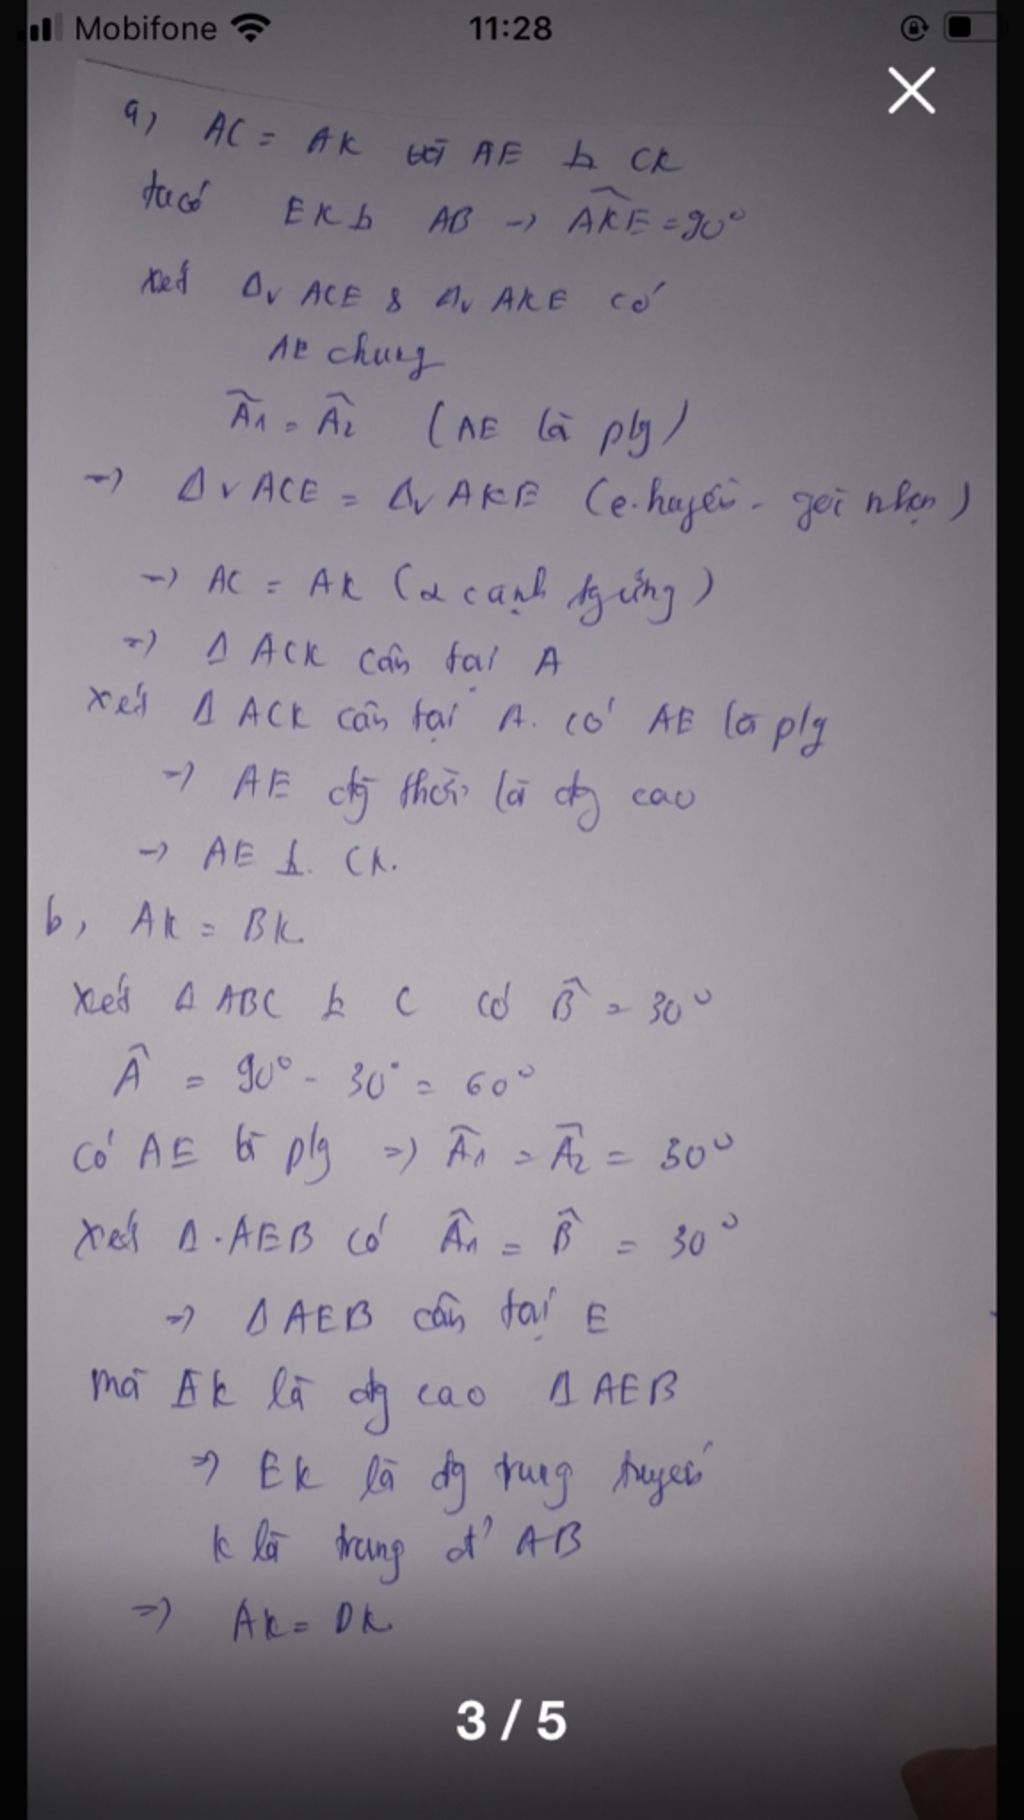 Mobifone 11:28
a, AC = AK với AE ⊥ CK
ta có EK ⊥ AB → \widehat{AKE} = 90°
xét Δv ACE & Δv AKE có
AE chung
Â1 = Â2 (AE là p/g)
→ Δv ACE = Δv AKE (c.huyền - góc nhọn)
→ AC = AK (2 cạnh tg ứng)
→ Δ ACK cân tại A
xét Δ ACK cân tại A. có AE là p/g
→ AE đg thời là đg cao
→ AE ⊥ CK.
b, AK = BK
xét Δ ABC ⊥ C có B̂ = 30°
Â = 90° - 30° = 60°
có AE là p/g => Â1 = Â2 = 30°
xét Δ.AEB có Â1 = B̂ = 30°
=> Δ AEB cân tại E
mà EK là đg cao Δ AEB
=> EK là đg trung tuyến
K là trung đ' AB
=> AK = BK
3 / 5